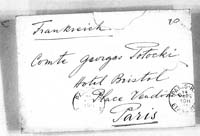 Frankreich
20
Comte Georges Potocki
Hotel Bristol
Place Vendôme
Paris